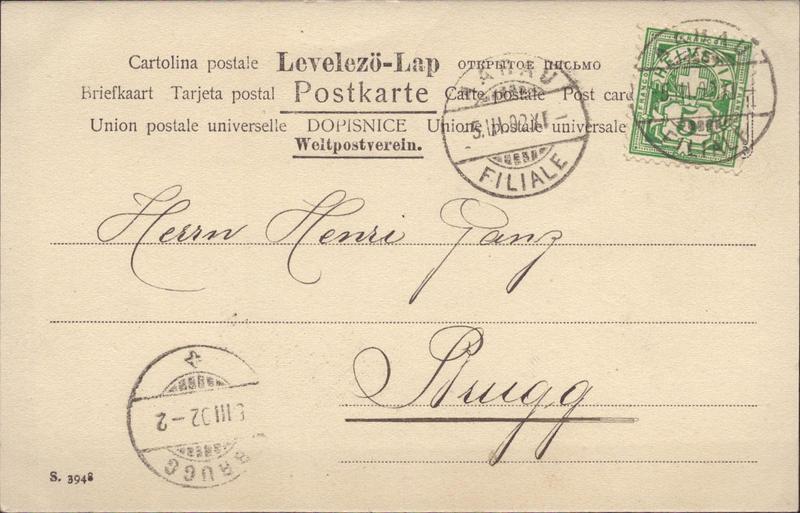 Cartolina postale Levelező-Lap ОТКРЫТОЕ ПИСЬМО
Briefkaart Tarjeta postal Postkarte Carte postale Post card
Union postale universelle DOPISNICE Unione postale universale
Weltpostverein.
AARAU
5.III.02.XI
FILIALE
HELVETIA
AARAU
FILIALE
Herrn Henri Ganz
Brugg
III 02-2
BRUGG
S. 3948